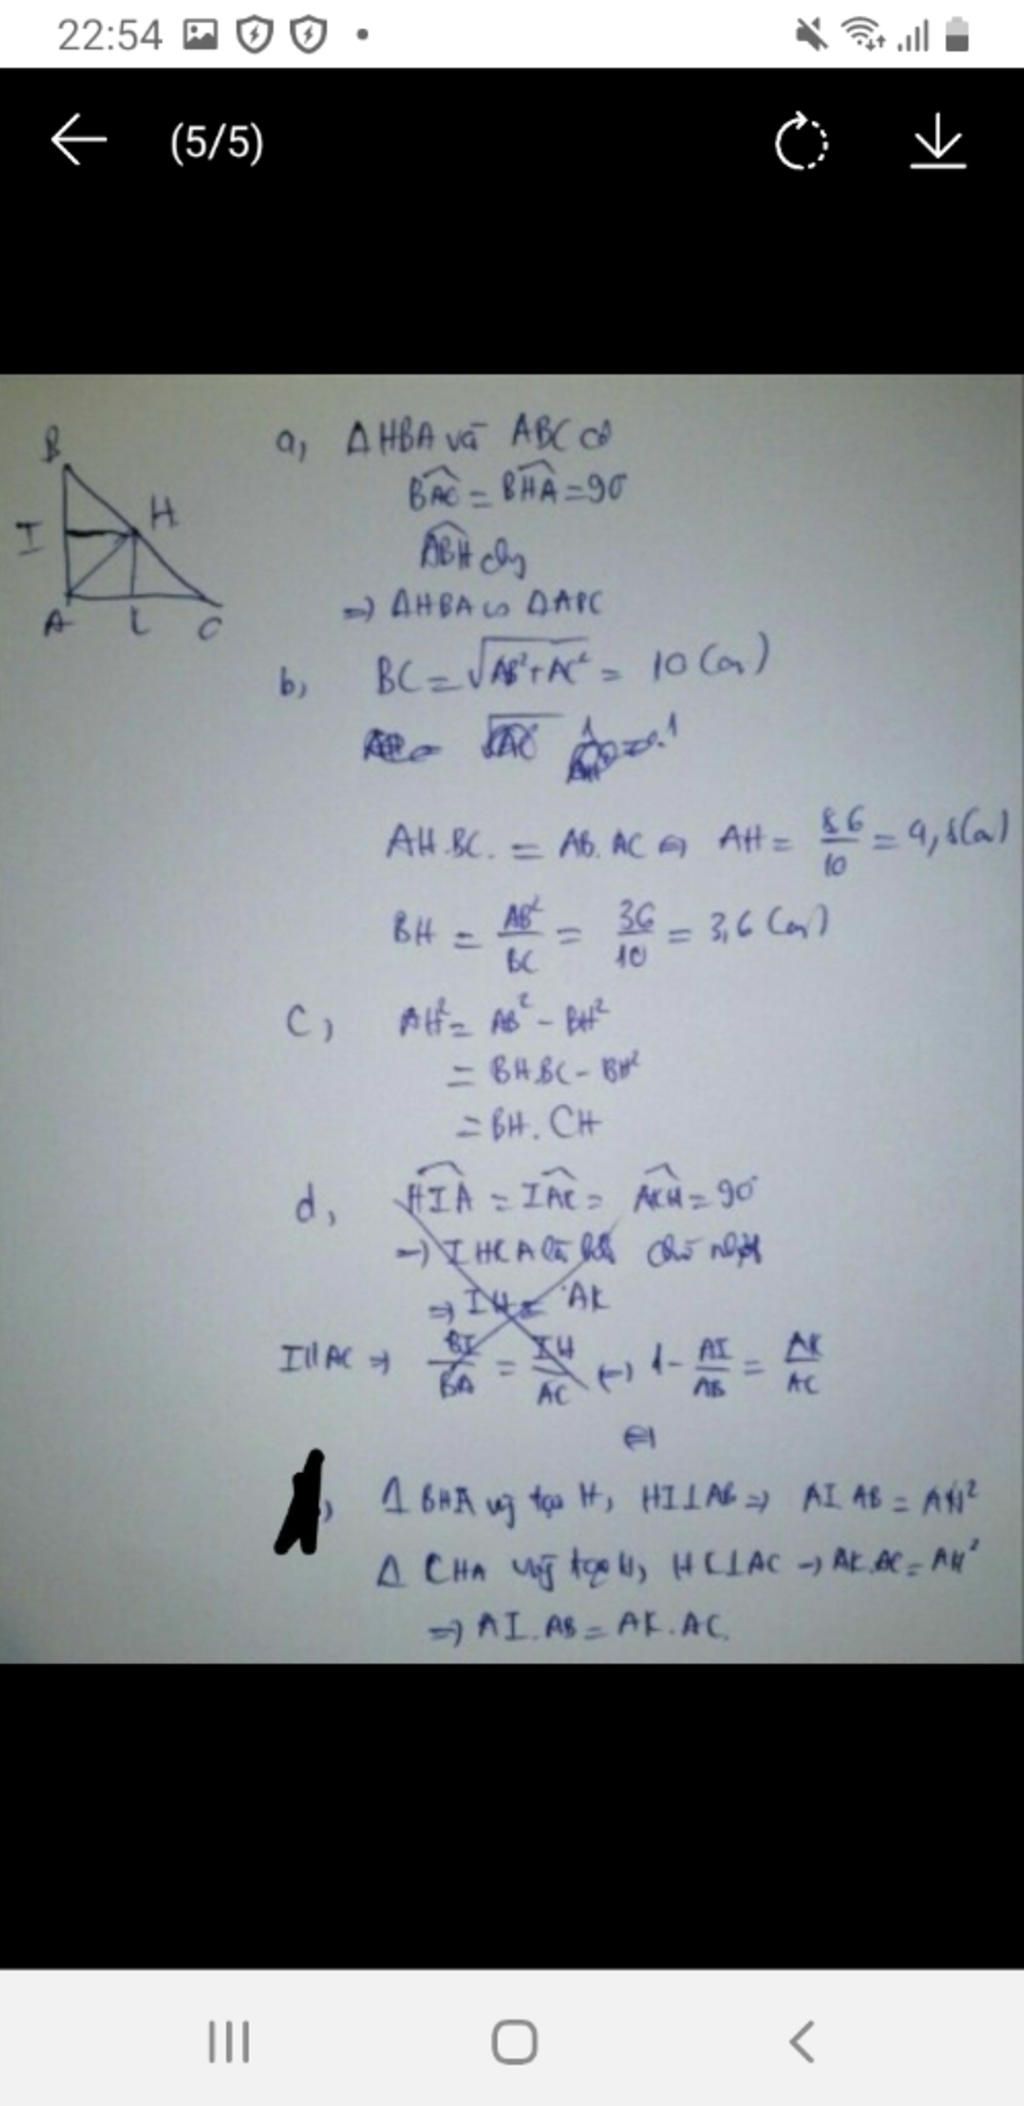 22:54
(5/5)
B
I
H
A
L
C
a, ΔHBA và ABC có
BAC = BHA = 90
ABH chg
=> ΔHBA ∽ ΔABC
b, BC = √AB²+AC² = 10 (cm)
AH.BC. = AB.AC ⇔ AH = 8.6/10 = 4,8 (cm)
BH = AB²/BC = 36/10 = 3,6 (cm)
c, AH² = AB² - BH²
= BH.BC - BH²
= BH.CH
d, HIA = IAC = AKH = 90°
=> IHCA là hh chữ nhật
=> IH = AK
I || AC => BI/BA = IH/AC (=) 1 - AI/AB = AK/AC
⇔
Δ BHA vg tại H, HI⊥AB => AI.AB = AH²
Δ CHA vg tại H, HC⊥AC => AK.AC = AH²
=> AI.AB = AK.AC.